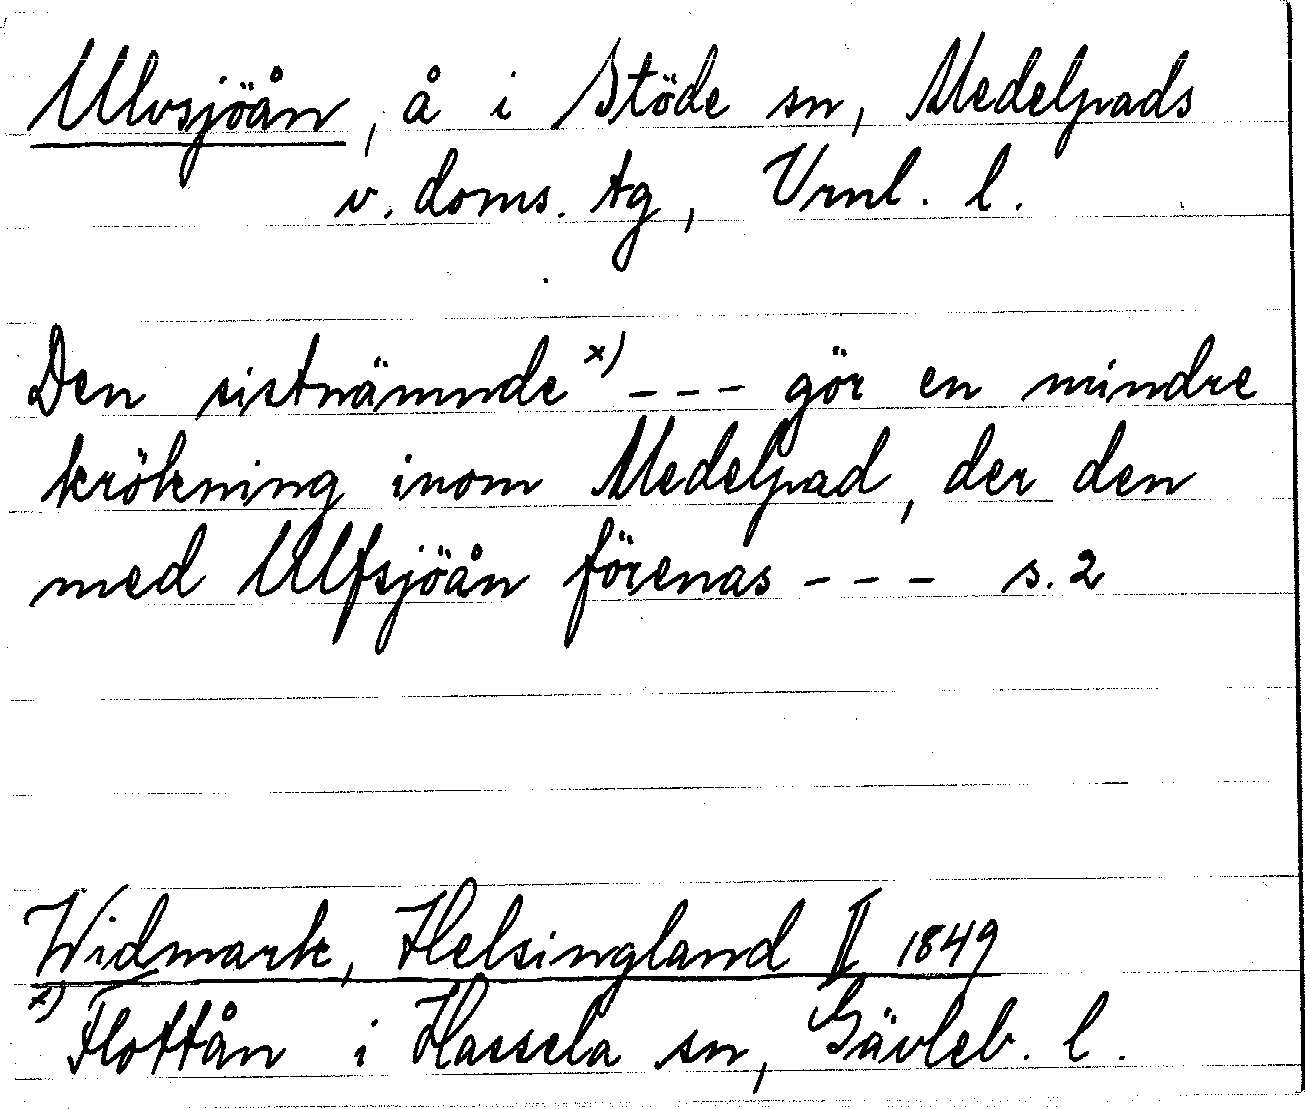 Ulvsjöån, å i Stöde sn, Medelpads
v. doms. tg, Vrnl. l.
Den sistnämnde x) --- gör en mindre
krökning inom Medelpad, der den
med Ulfsjöån förenas --- s. 2
Widmark, Helsingland II 1849
x) Flottån i Hassela sn, Gävleb. l.